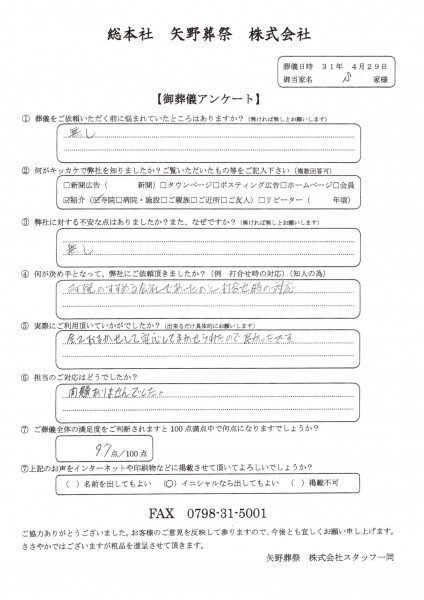 総本社　矢野葬祭　株式会社
葬儀日時　31年　4月29日
御当家名　家様
【御葬儀アンケート】
① 葬儀をご依頼いただく前に悩まれていたところはありますか？（無ければ無しとお願いします）
無し
② 何がキッカケで弊社を知りましたか？ご覧いただいたもの等をご記入下さい（複数回答可）
□新聞広告（　　　新聞）□タウンページ□ポスティング広告□ホームページ□会員
☑紹介（☑寺院□病院・施設□ご親族□ご近所□ご友人）□リピーター（　　　年頃）
③ 弊社に対する不安な点はありましたか？また、なぜですか？（無ければ無しとお願いします）
無し
④ 何が決め手となって、弊社にご依頼頂きましたか？（例　打合せ時の対応）（知人の為）
打合せ時の対応
⑤ 実際にご利用頂いていかがでしたか？（出来るだけ具体的にお願いします）
全ておまかせして安心してまかせられたので良かったです
⑥ 担当のご対応はどうでしたか？
問題ありませんでした。
⑦ ご葬儀全体の満足度をご判断されますと100点満点中で何点になりますでしょうか？
97点/100点
⑦上記のお声をインターネットや印刷物などに掲載させて頂いてよろしいでしょうか？
（ ）名前を出してもよい　（○）イニシャルなら出してもよい　（ ）掲載不可
FAX　0798-31-5001
ご協力ありがとうございました。お客様のご意見を反映して参りますので、今後とも宜しくお願い申し上げます。
ささやかではございますが粗品を進呈させて頂きます。
矢野葬祭　株式会社スタッフ一同